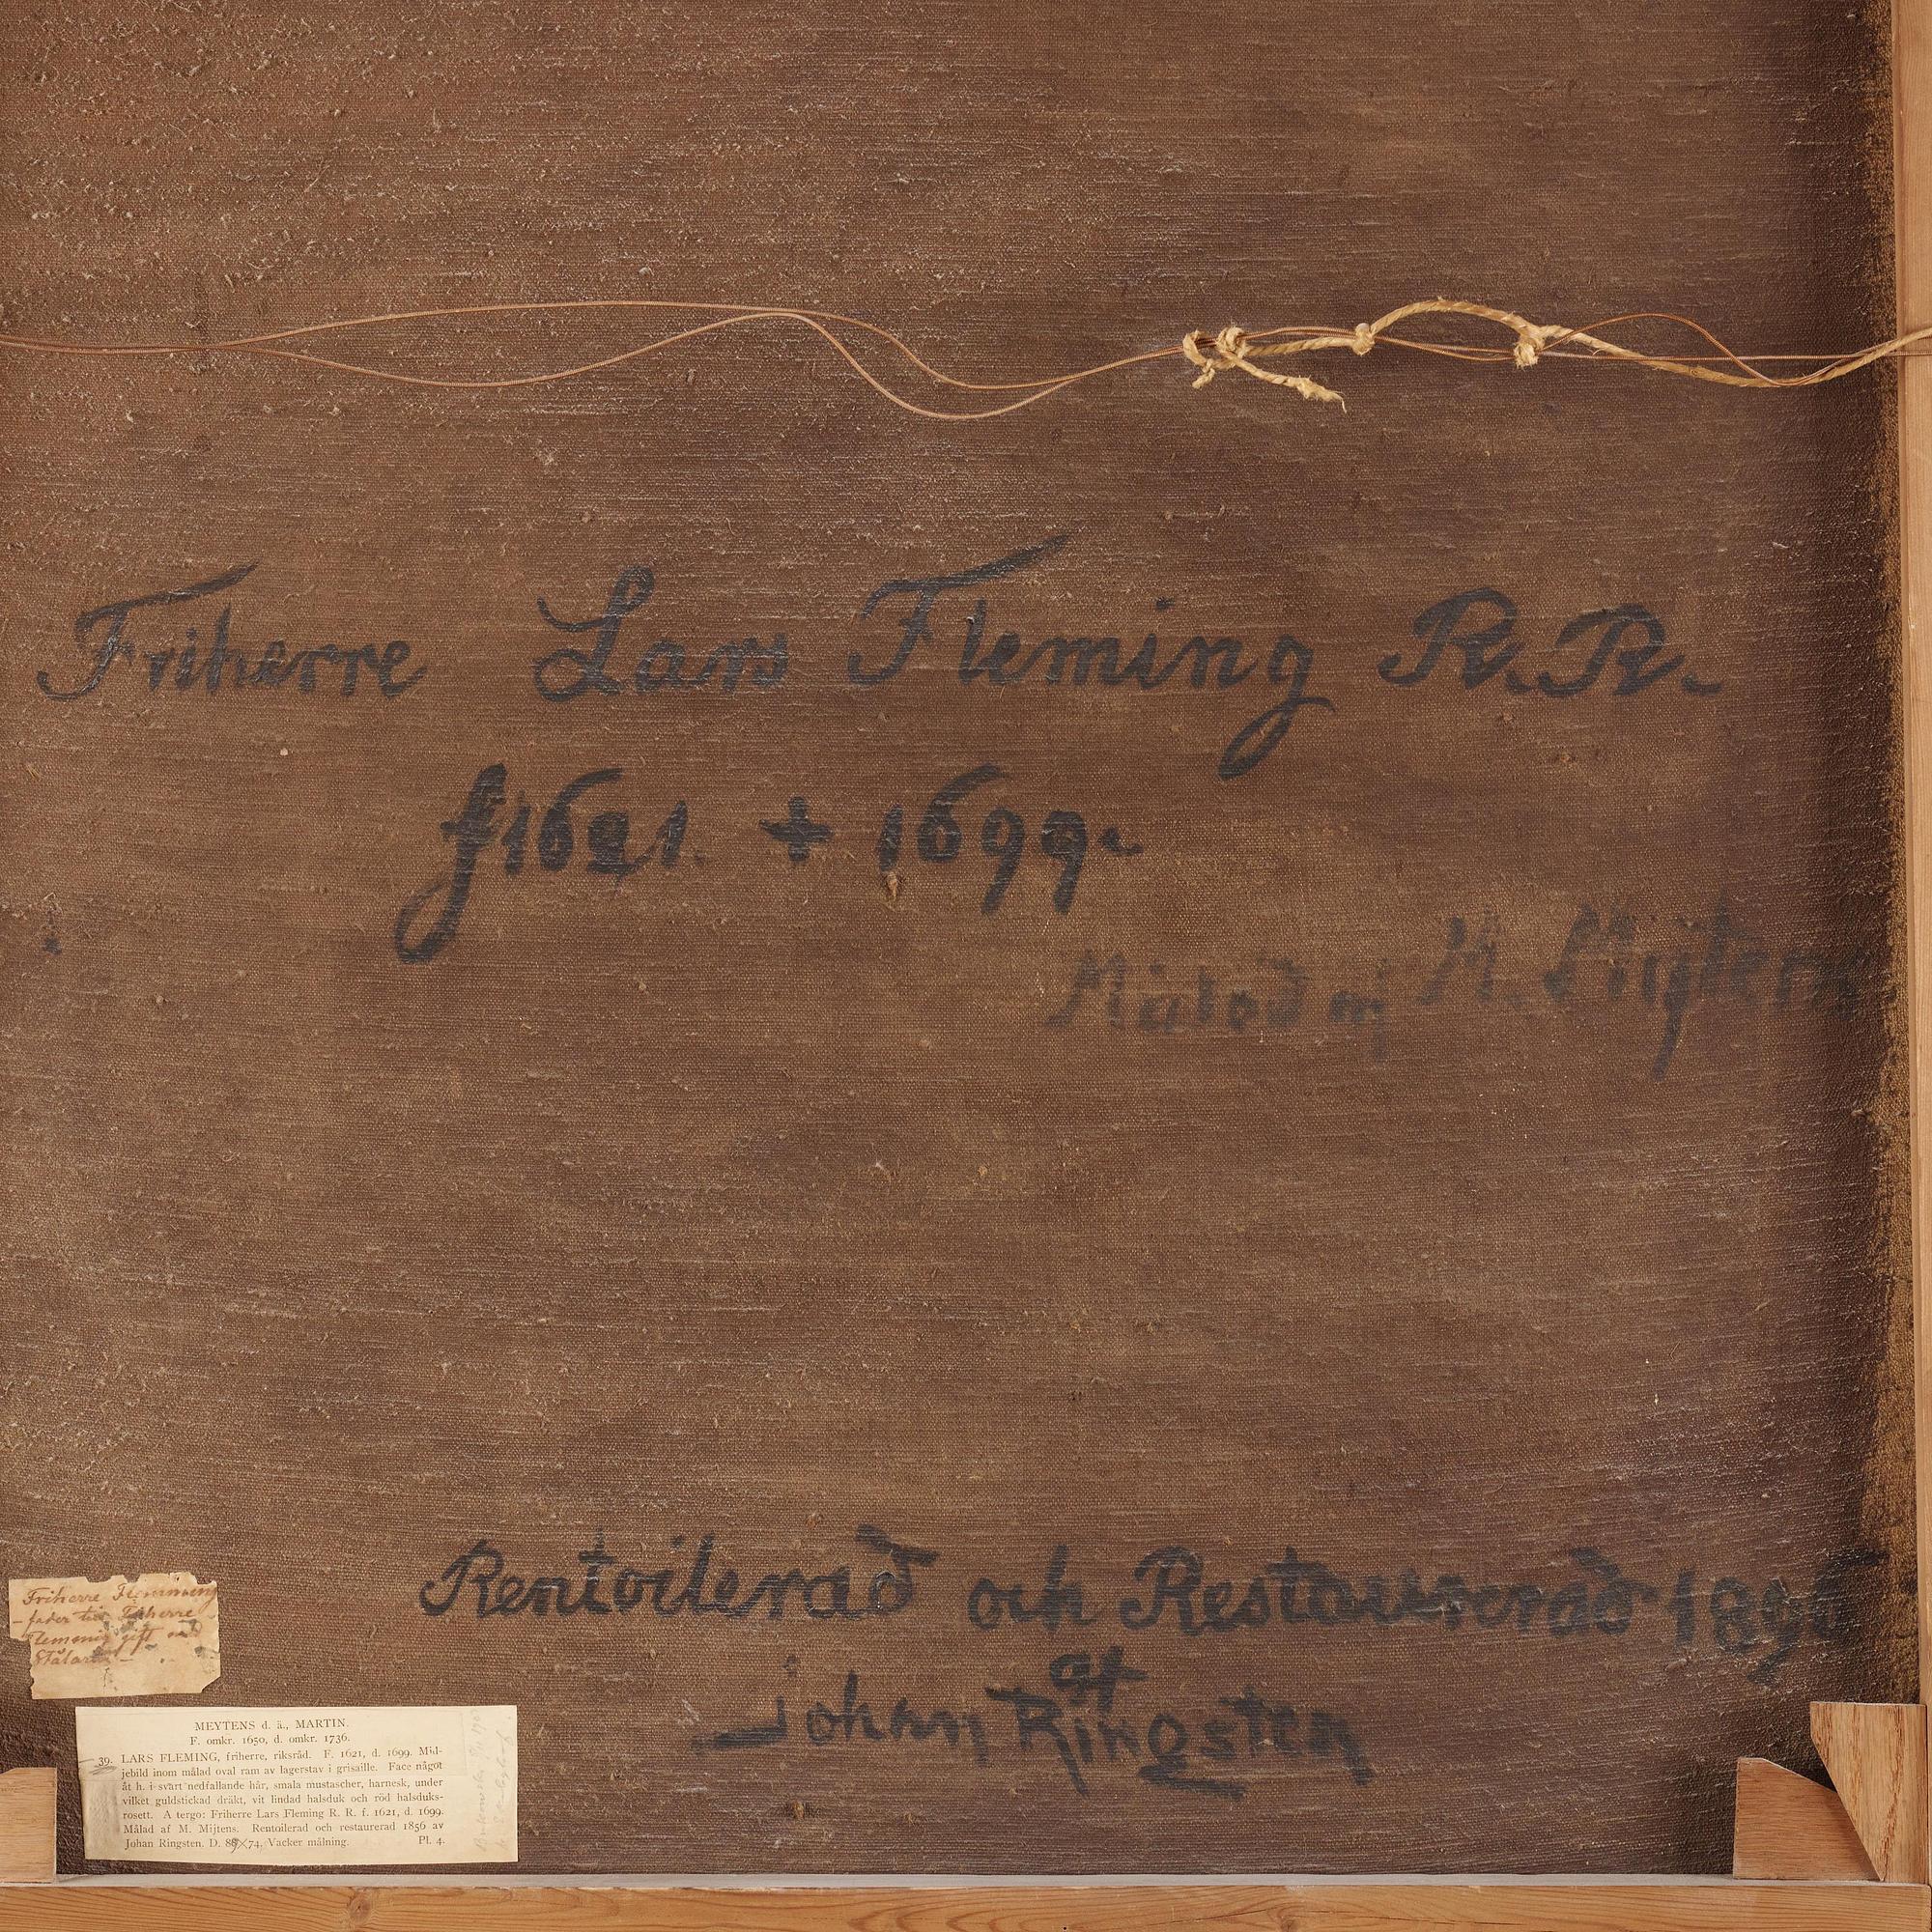 Friherre Lars Fleming R. R.
f 1621. + 1699.
Målad af M. Mijtens
Rentoilerad och Restaurerad 1896
af
Johan Ringsten
Friherre Flemming
fader till Friherre
Flemming gift med
MEYTENS d. ä., MARTIN.
F. omkr. 1650, d. omkr. 1736.
39. LARS FLEMING, friherre, riksråd. F. 1621, d. 1699. Mid-
jebild inom målad oval ram av lagerstav i grisaille. Face något
åt h. i svart nedfallande hår, smala mustascher, harnesk, under
vilket guldstickad dräkt, vit lindad halsduk och röd halsduks-
rosett. A tergo: Friherre Lars Fleming R. R. f. 1621, d. 1699.
Målad af M. Mijtens. Rentoilerad och restaurerad 1856 av
Johan Ringsten. D. 74, Vacker målning. Pl. 4.